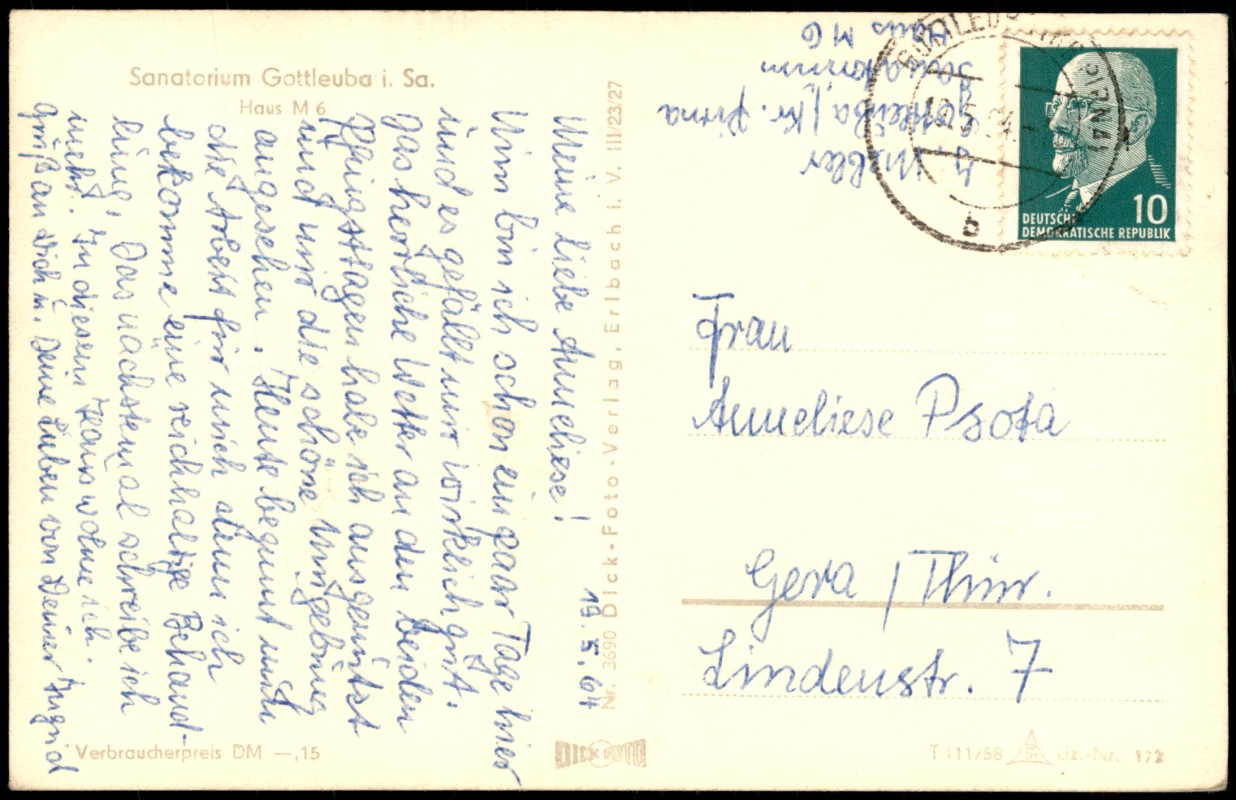 Sanatorium Gottleuba i. Sa.
Haus M 6
19. 5. 64
Meine liebe Anneliese!
Nun bin ich schon ein paar Tage hier
und es gefällt mir wirklich gut.
Das herrliche Wetter an den beiden
Pfingsttagen habe ich ausgenützt
und mir die schöne Umgebung
angesehen. Heute beginnt nun
die Arbeit für mich denn ich
bekomme eine reichhaltige Behand-
lung. Das nächstemal schreibe ich
mehr. In diesem Haus wohne ich.
Gruß an Dich u. Deine Lieben von Deiner Ingrid
Verbraucherpreis DM —,15
Nr. 3690 Dick-Foto-Verlag, Erlbach i. V. III/23/27
DICK FOTO
Gottleuba/Kr. Pirna
Sanatorium
Haus M 6
b
DEUTSCHE
DEMOKRATISCHE REPUBLIK
10
Frau
Anneliese Psota
Gera / Thür.
Lindenstr. 7
T 111/58 Liz.-Nr. 172